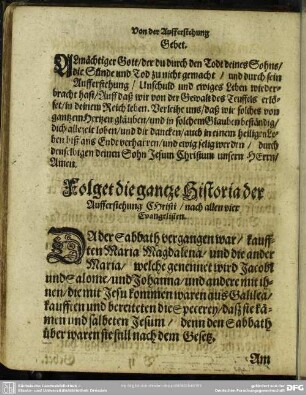 Von der Aufferstehung
Gebet.
Allmächtiger Gott / der du durch den Todt deines Sohns /
die Sünde und Tod zu nicht gemacht / und durch sein
Aufferstehung / Unschuld und ewiges Leben wieder-
bracht hast / Auff daß wir von der Gewalt des Teuffels erlö-
set / in deinem Reich leben. Verleihe uns / daß wir solches von
gantzem Hertzen gläuben / und in solchem Glauben beständig /
dich allezeit loben / und dir dancken / auch in einem heiligen Le-
ben biß ans Ende verharren / und ewig selig werden / durch
denselbigen deinen Sohn Jesum Christum unsern HErrn /
Amen.
Folget die gantze Historia der
Aufferstehung CHristi / nach allen vier
Evangelisten.
DA der Sabbath vergangen war / kauff-
ten Maria Magdalena / und die ander
Maria / welche genennet wird Jacobi
und Salome / und Johanna / und andere mit ih-
nen / die mit Jesu kommen waren aus Galilea /
kaufften und bereiteten die Specerey / daß sie kä-
men und salbeten Jesum / denn den Sabbath
über waren sie still nach dem Gesetz.
Am